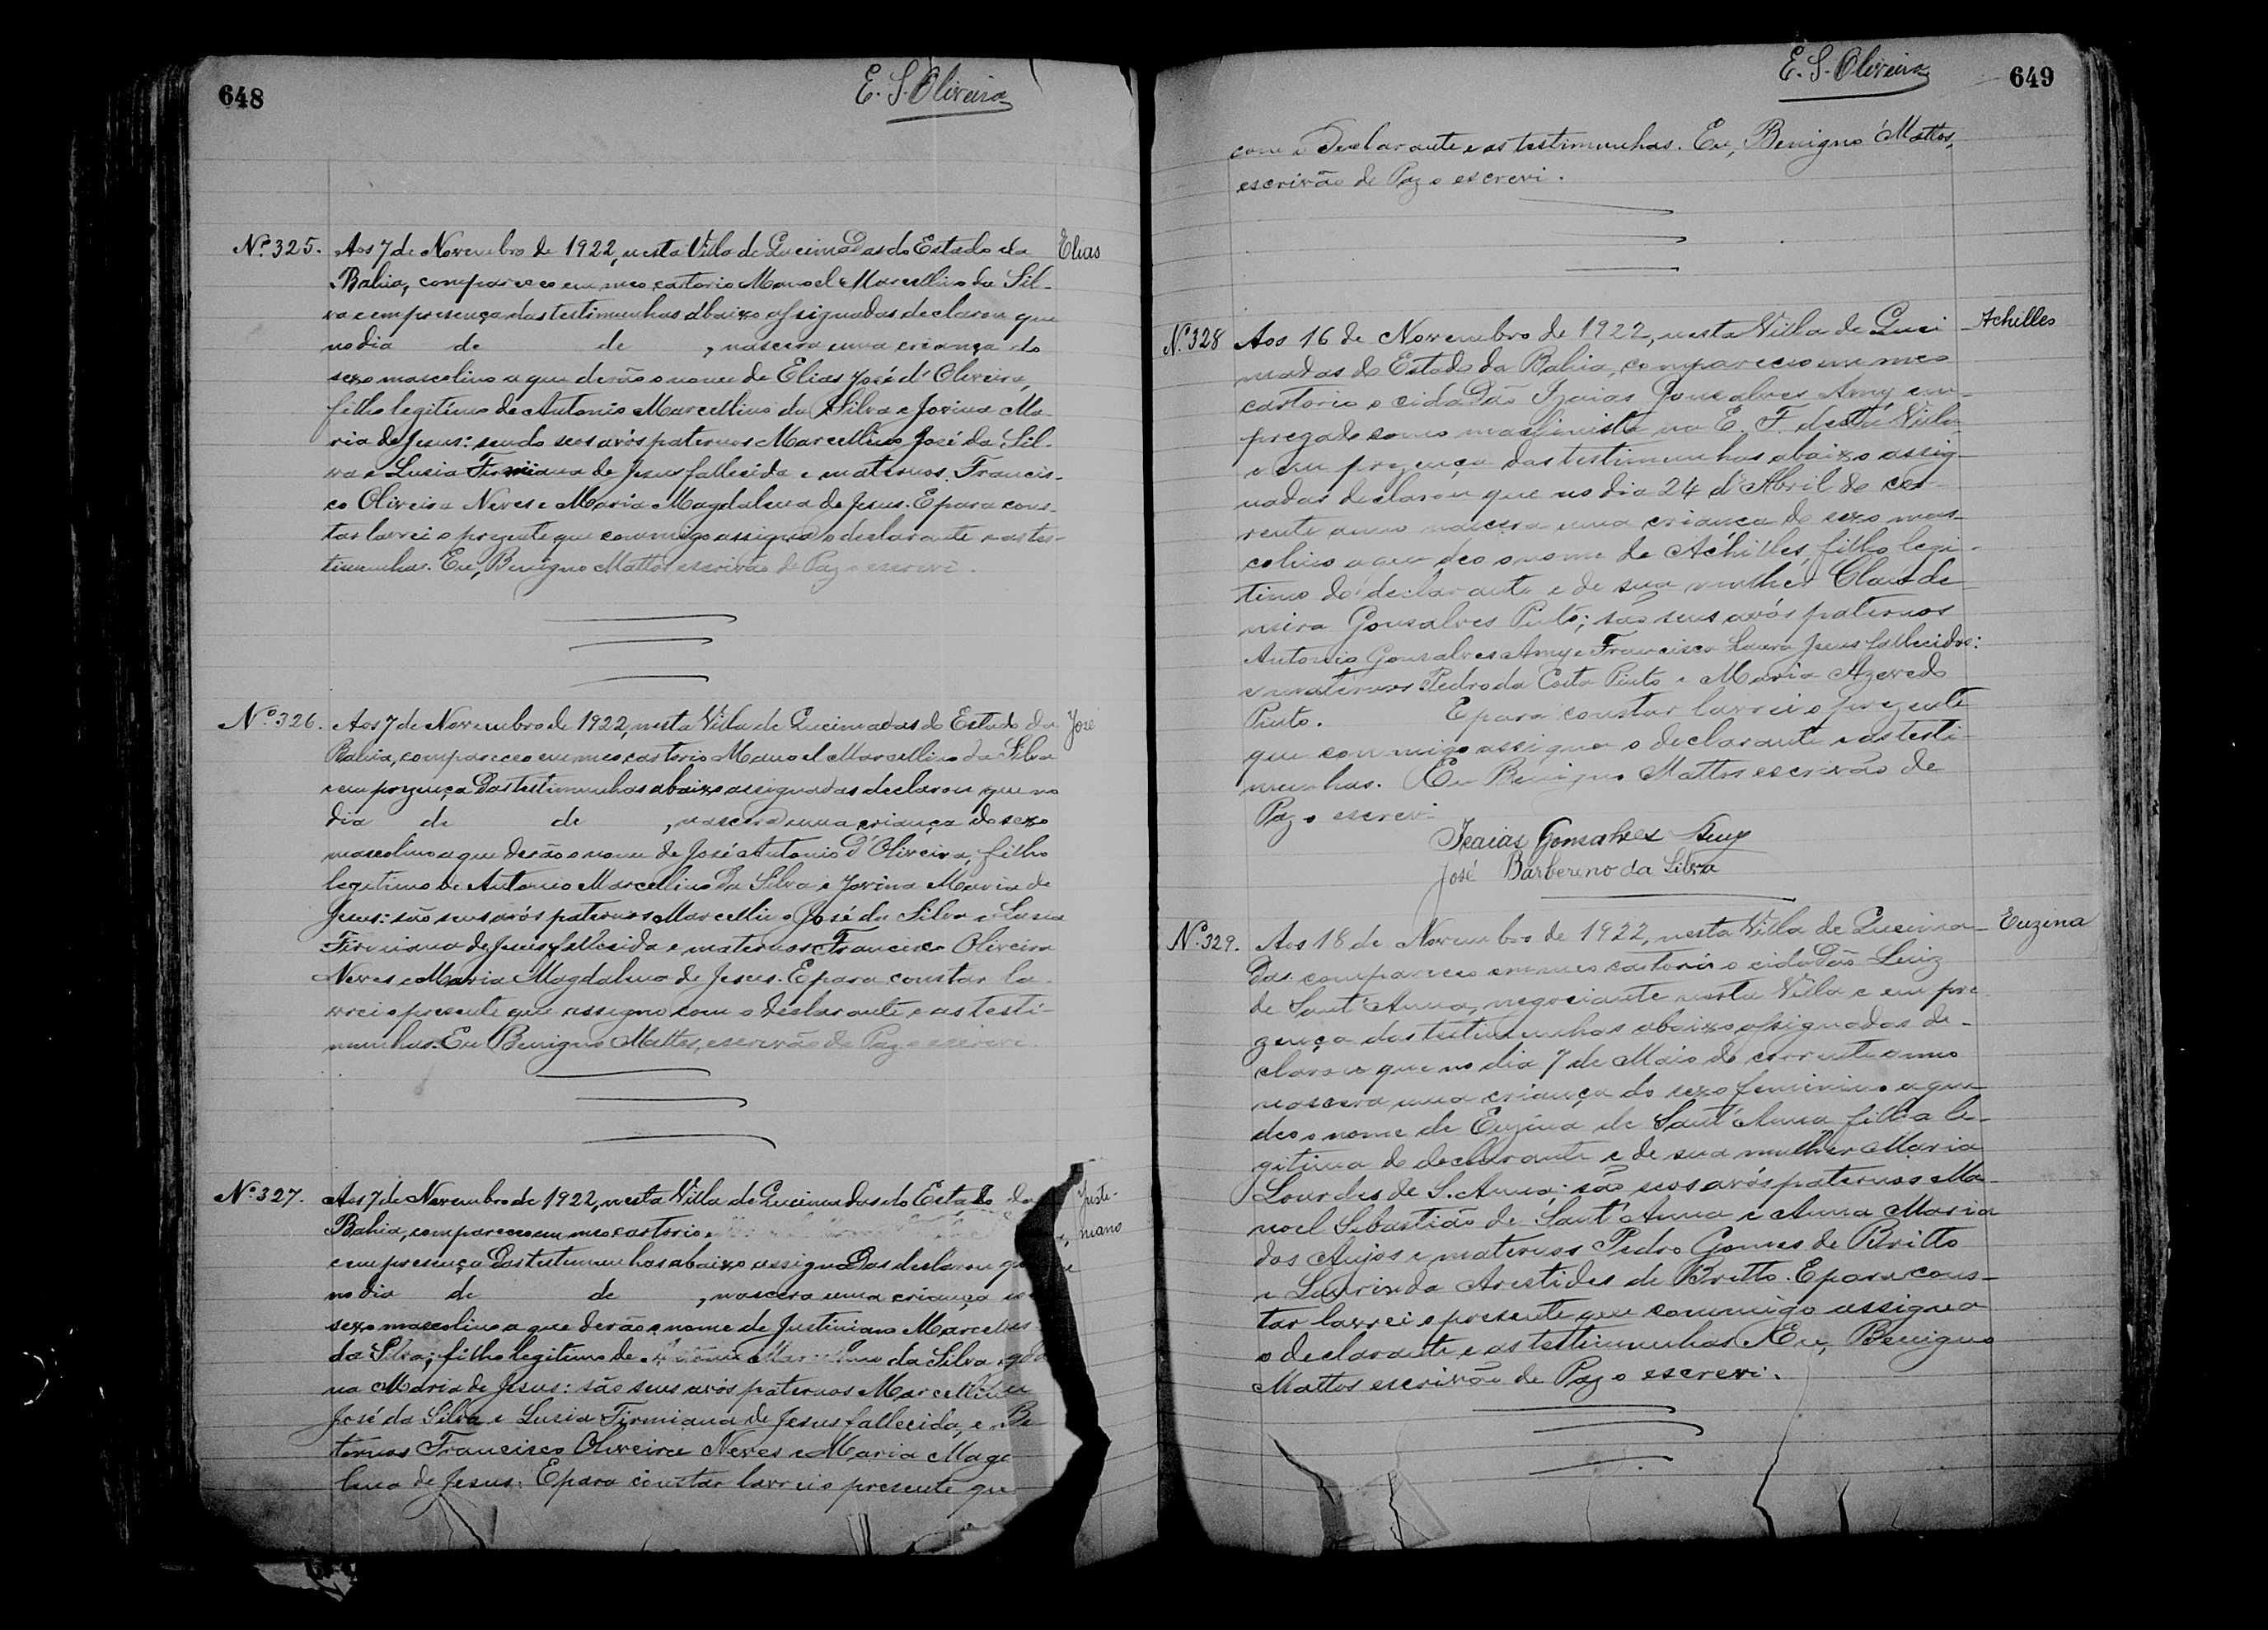 648
E. S. Oliveira
Nº 325. Aos 7 de Novembro de 1922, nesta Villa de Queimadas do Estado da Elias
Bahia, compareceo em meo cartorio Manoel Marcellino da Sil-
va e em presença das testimunhas abaixo assignadas declarou que
no dia de de , nascera uma criança do
sexo masculino a que derão o nome de Elias José d'Oliveira,
filho legitimo de Antonio Marcellino da Silva e Jovina Ma-
ria de Jesus: sendo seos avós paternos Marcellino José da Sil-
va e Lusia Firmiana de Jesus fallecida e maternos Francis-
co Oliveira Neves e Maria Magdalena de Jesus. E para cons-
tar lavrei o prezente que commigo assigna o declarante e as tes-
timunhas. Eu, Benigno Mattos escrivão de Paz o escrevi.
Nº 326. Aos 7 de Novembro de 1922, nesta Villa de Queimadas do Estado da José
Bahia, compareceo em meo cartorio Manoel Marcellino da Silva
e em prezença das testimunhas abaixo assignadas declarou que no
dia de de , nascera uma criança do sexo
masculino a que derão o nome de José Antonio d'Oliveira, filho
legitimo de Antonio Marcellino da Silva e Jovina Maria de
Jesus: são seus avós paternos Marcellino José da Silva e Lusia
Firmiana de Jesus fallecida e maternos Francisco Oliveira
Neves e Maria Magdalena de Jesus. E para constar la-
vrei o presente que assigno com o declarante e as testi-
munhas. Eu Benigno Mattos, escrivão de Paz o escrevi
Nº 327. Aos 7 de Novembro de 1922, nesta Villa de Queimadas do Estado da Juste-
Bahia, compareceo em meo cartorio niano
e em presença das testimunhas abaixo assignadas declarou que
no dia de de , nascera uma criança
sexo masculino a que derão o nome de Justiniano Marcellino
da Silva; filho legitimo de da Silva e
na Maria de Jesus: são seus avós paternos Marcellino
José da Silva e Lusia Firmiana de Jesus fallecida, e
ternos Francisco Oliveira Neves e Maria Magd
lena de Jesus. E para constar lavrei o presente que
E. S. Oliveira
649
com o declarante e as testimunhas. Eu, Benigno Mattos,
escrivão de Paz o escrevi.
Nº 328 Aos 16 de Novembro de 1922, nesta Villa de Quei Achilles
madas do Estado da Bahia, compareceo em meo
cartorio o cidadão Izaias Gonsalves Amy em-
pregado como machinista na E. F. desta Villa
e em prezença das testimunhas abaixo assig-
nadas declarou que no dia 24 d'Abril do cor-
rente anno nascera uma criança do sexo mas-
colino a que deo o nome de Achilles, filho legi-
timo do declarante e de sua mulher Claude-
mira Gonsalves Pinto; são seus avós paternos
Antonio Gonsalves Amy e Francisca Laura Jesus fallecidos:
e maternos Pedro da Costa Pinto e Maria Azevedo
Pinto. E para constar lavrei o prezente
que commigo assigna o declarante e as testi-
munhas. Eu Benigno Mattos escrivão de
Paz o escrevi
Isaias Gonsalves Amy
José Barberino da Silva
Nº 329. Aos 18 de Novembro de 1922, nesta Villa de Queima- Euzina
das compareceo em meo cartorio o cidadão Luiz
de Sant'Anna, negociante nesta Villa e em pre
zença das testimunhas abaixo assignadas de-
clarou que no dia 7 de Maio do corrente anno
nascera uma criança do sexo feminino a que
deo o nome de Euzina de Sant'Anna filha le-
gitima do declarante e de sua mulher Maria
Lourdes de S. Anna: são seos avós paternos Ma-
noel Sebastião de Sant'Anna e Anna Maria
dos Anjos e maternos Pedro Gomes de Britto
e Laurinda Arestides de Britto. E para cons-
tar lavrei o presente que commigo assigna
o declarante e as testimunhas. Eu, Benigno
Mattos escrivão de Paz o escrevi.